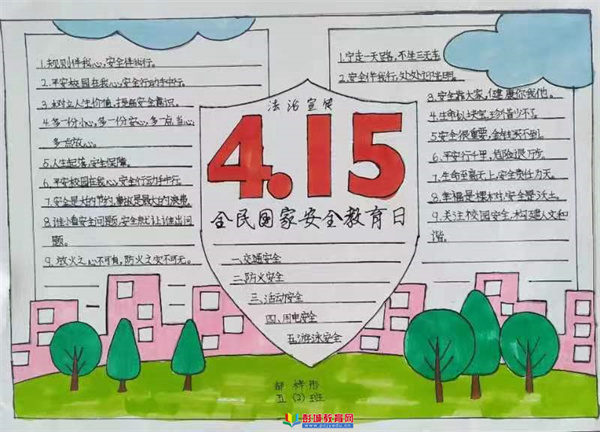 1.规则伴我心,安全伴我行。
2.平安校园在我心,安全行动手中行。
3.树立人生价值,提振安全意识。
4.多一份小心,多一份安心,多一点当心
多一点放心。
5.人生起落,安全保障。
6.平安校园在我心,安全行动手中行。
7.安全是大的节约,事故是最大的浪费
8.谁小看安全问题,安全就让谁出问
题。
9.放火之心不可有,防火之灾不可无。
法治宣传
4.15
全民国家安全教育日
一.交通安全
二.防火安全
三.活动安全
四.用电安全
五.游泳安全
1.宁走一天路,不坐三无车
2.安全伴我行,处处
3.安全靠大家,健康你我他。
4.生命似珠宝,珍惜少不了。
5.安全很重要,金钱买不到。
6.平安行千里,危险退万方。
7.生命至高无上,安全责任为天。
8.幸福是棵树,安全是沃土。
9.关注校园安全,构建人文和
谐。
五(2)班
彭城教育网
www.pcjyedu.cn